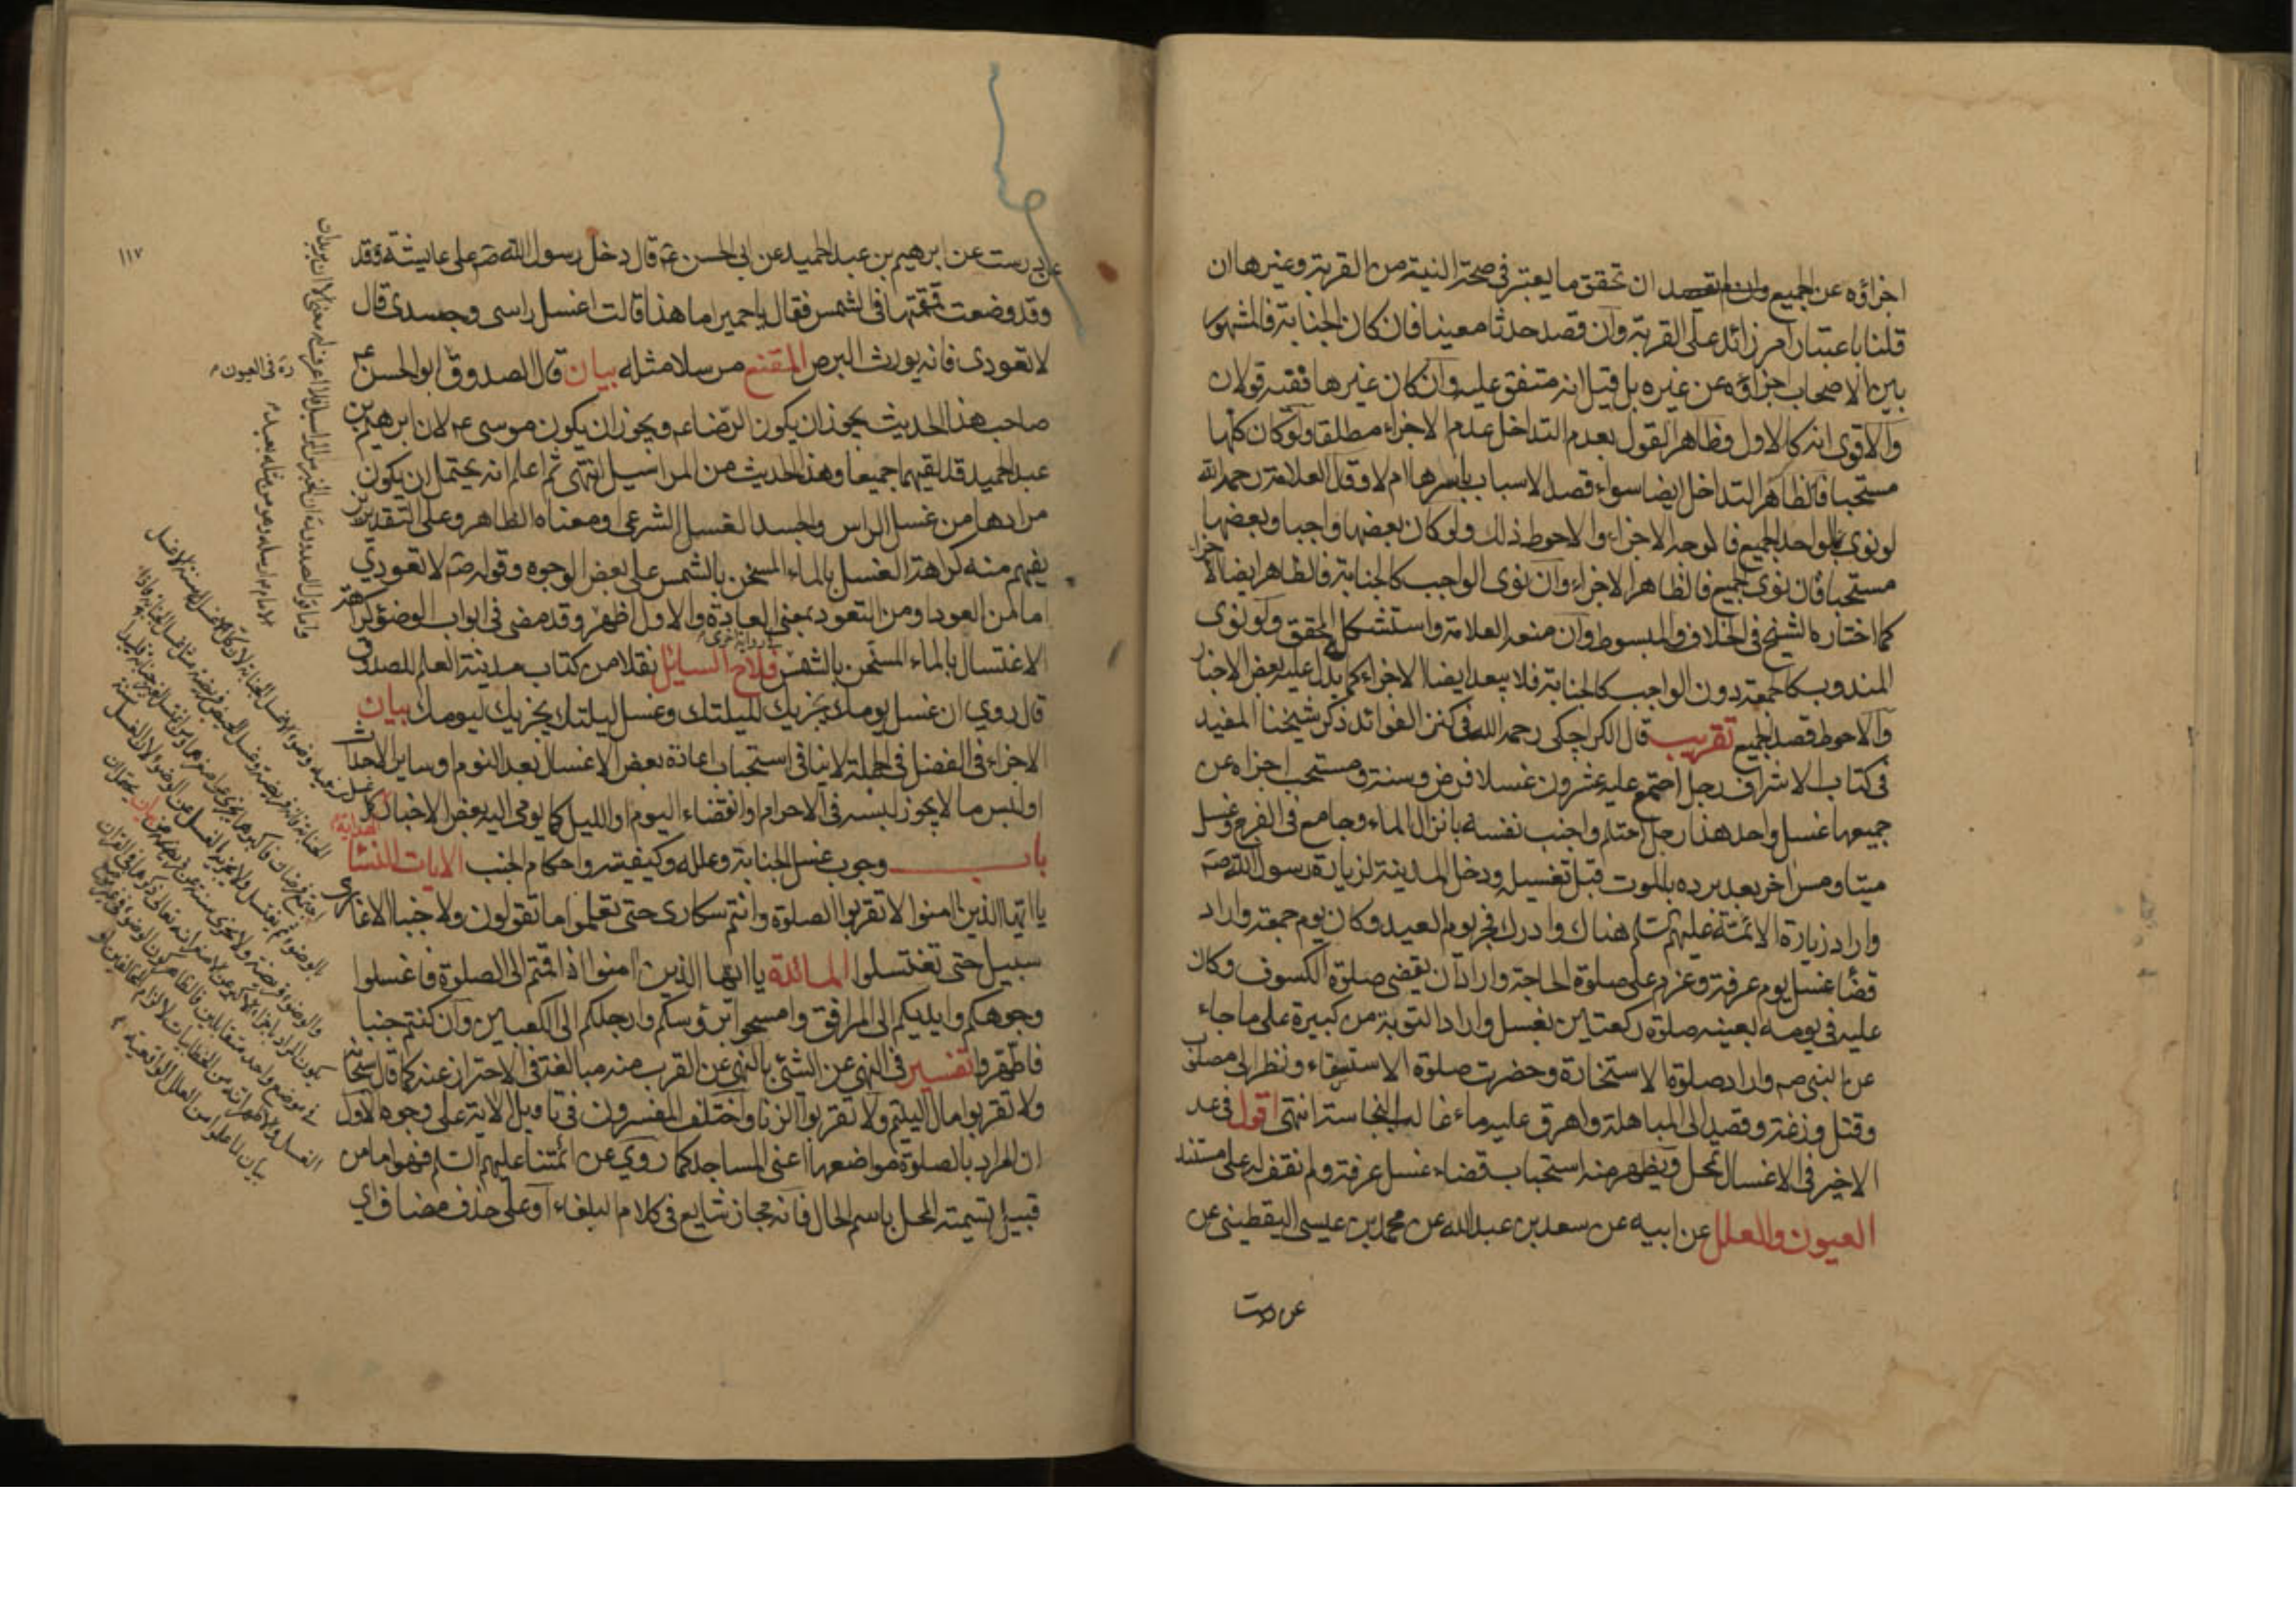 اجزاؤه عن الجميع وان لم يقصد ان تحقق ما يعتبر فى صحة النية من القربة وغيرها ان
قلنا باعتبار امر زائد على القربة وان قصد حدثا معينا فان كان الجنابة فالمشهور
بين الاصحاب اجزاؤه عن غيره بل قيل انه متفق عليه وان كان غيرها ففيه قولان
والاقوى انه كالاول وظاهر القول بعدم التداخل عدم الاجزاء مطلقا ولو كان كلها
مستحبا فالظاهر التداخل ايضا سواء قصد الاسباب باسرها ام لا وقال العلامة رحمه الله
لو نوى بالواحد الجميع فالوجه الاجزاء والاحوط ذلك ولو كان بعضها واجبا وبعضها
مستحبا فان نوى الجميع فالظاهر الاجزاء وان نوى الواجب كالجنابة فالظاهر ايضا الاجزاء
كما اختاره الشيخ فى الخلاف والمبسوط وان منعه العلامة واستشكل المحقق ولو نوى
المندوب كالجمعة دون الواجب كالجنابة فلا يبعد ايضا الاجزاء كما يدل عليه بعض الاخبار
والاحوط قصد الجميع تقريب قال الكراجكى رحمه الله فى كنز الفوائد ذكر شيخنا المفيد
فى كتاب الاشراف رجل اجتمع عليه عشرون غسلا فرض وسنة ومستحب اجزاه عن
جميعها غسل واحد هذا رجل احتلم واجنب نفسه بانزال الماء وجامع فى الفرج وغسل
ميتا ومس اخر بعد برده بالموت قبل تغسيله ودخل المدينة لزيارة رسول الله ص
واراد زيارة الائمة عليهم السلم هناك وادرك فجر يوم العيد وكان يوم جمعة واراد
قضاء غسل يوم عرفة وعزم على صلوة الحاجة واراد ان يقضى صلوة الكسوف وكان
عليه فى يومه بعينه صلوة ركعتين بغسل واراد التوبة من كبيرة على ما جاء
عن النبى ص واراد صلوة الاستخارة وحضرت صلوة الاستسقاء ونظر الى مصلوب
وقتل وزغة وقصد الى المباهلة واهرق عليه ماء غالب النجاسة انتهى اقول فى عد
الاخير فى الاغسال تمحل ويظهر منه استحباب قضاء غسل عرفة ولم نقف له على مستند
العيون والعلل عن ابيه عن سعد بن عبد الله عن محمد بن عيسى اليقطينى عن
عن درست
١١٧
عن درست عن ابرهيم بن عبد الحميد عن ابى الحسن ع قال دخل رسول الله ص على عايشة وقد
وقد وضعت قمقمتها فى الشمس فقال يا حميرا ما هذا قالت اغسل راسى وجسدى قال
لا تعودى فانه يورث البرص المقنع مرسلا مثله بيان قال الصدوق ابو الحسن ع
صاحب هذا الحديث يجوز ان يكون الرضا ع ويجوز ان يكون موسى ع لان ابرهيم بن
عبد الحميد قد لقيهما جميعا وهذا الحديث من المراسيل انتهى ثم اعلم انه يحتمل ان يكون
مرادها من غسل الراس والجسد الغسل الشرعى ومعناه الظاهر وعلى التقديرين
يفهم منه كراهة الغسل بالماء المسخن بالشمس على بعض الوجوه وقوله ص لا تعودي
اما من العود او من التعود بمعنى العادة والاول اظهر وقد مضى فى ابواب الوضوء كراهة
الاغتسال بالماء المسخن بالشمس فلاح السايل نقلا من كتاب مدينة العلم للصدوق
قال روي ان غسل يومك يجزيك لليلتك وغسل ليلتك يجزيك ليومك بيان
الاجزاء فى الفضل فى الجملة لا ينافى استحباب اعادة بعض الاغسال بعد النوم وساير الاحداث
او لبس ما لا يجوز لبسه فى الاحرام وانقضاء اليوم او الليل كما يومى اليه بعض الاخبار
باب وجوب غسل الجنابة وعلله وكيفيته واحكام الجنب الايات النساء
يا ايها الذين امنوا لا تقربوا الصلوة وانتم سكارى حتى تعلموا ما تقولون ولا جنبا الا عابرى
سبيل حتى تغتسلوا المائدة يا ايها الذين امنوا اذا قمتم الى الصلوة فاغسلوا
وجوهكم وايديكم الى المرافق وامسحوا برؤسكم وارجلكم الى الكعبين وان كنتم جنبا
فاطهروا تفسير فى النهى عن الشئ بالنهى عن القرب منه مبالغة فى الاحتراز عنه كما قال سبحانه
ولا تقربوا مال اليتيم ولا تقربوا الزنا واختلف المفسرون فى تاويل الاية على وجوه الاول
ان المراد بالصلوة مواضعها اعنى المساجد كما روي عن ائمتنا عليهم السلم فهو اما من
قبيل تسمية المحل باسم الحال فانه مجاز شايع فى كلام البلغاء او على حذف مضاف اي
ره فى العيون
الهداية